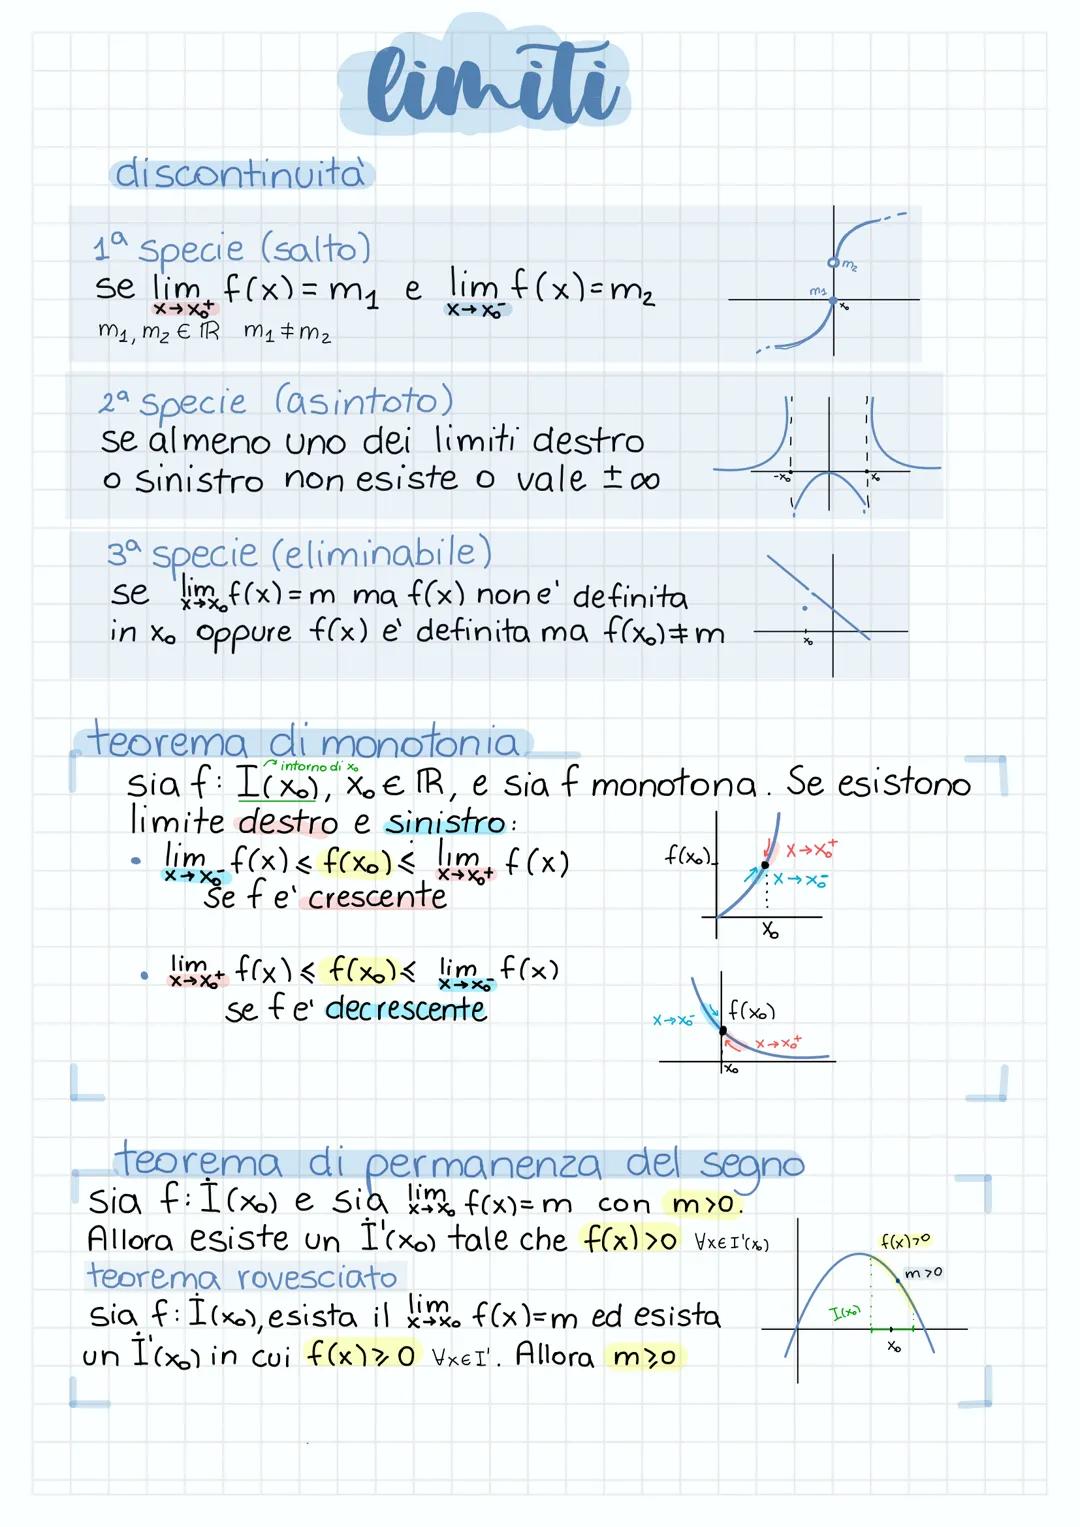 limiti
discontinuità
1ª specie (salto)
se lim x→x₀⁺ f(x) = m₁ e lim x→x₀⁻ f(x) = m₂
m₁, m₂ ∈ ℝ m₁ ≠ m₂
m₂
m₁
x₀
2ª specie (asintoto)
se almeno uno dei limiti destro
o sinistro non esiste o vale ±∞
-x₀ x₀
3ª specie (eliminabile)
se lim x→x₀ f(x) = m ma f(x) non e' definita
in x₀ oppure f(x) e' definita ma f(x₀) ≠ m
x₀
teorema di monotonia
intorno di x₀
sia f: I(x₀), x₀ ∈ ℝ, e sia f monotona. Se esistono
limite destro e sinistro:
• lim x→x₀⁻ f(x) ⩽ f(x₀) ⩽ lim x→x₀⁺ f(x)
se f e' crescente
f(x₀)
x→x₀⁺
x→x₀⁻
x₀
• lim x→x₀⁺ f(x) ⩽ f(x₀) ⩽ lim x→x₀⁻ f(x)
se f e' decrescente
x→x₀⁻ f(x₀)
x→x₀⁺
x₀
teorema di permanenza del segno
sia f: İ(x₀) e sia lim x→x₀ f(x) = m con m>0.
Allora esiste un İ'(x₀) tale che f(x)>0 ∀x∈I'(x₀)
teorema rovesciato
sia f: İ(x₀), esista il lim x→x₀ f(x)=m ed esista
un İ'(x₀) in cui f(x)⩾0 ∀x∈I'. Allora m⩾0
f(x)>0
m>0
I(x₀)
x₀